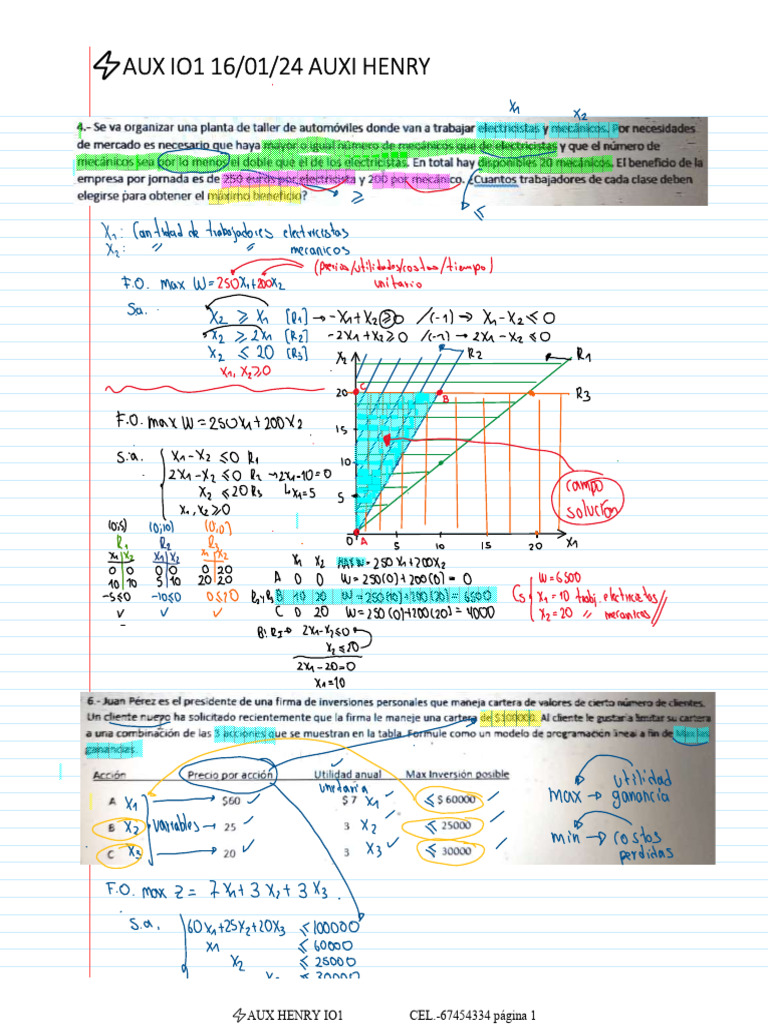 AUX IO1 16/01/24 AUXI HENRY
X1 X2
4.- Se va organizar una planta de taller de automóviles donde van a trabajar electricistas y mecánicos. Por necesidades
de mercado es necesario que haya mayor o igual número de mecánicos que de electricistas y que el número de
mecánicos sea por lo menos el doble que el de los electricistas. En total hay disponibles 20 mecánicos. El beneficio de la
empresa por jornada es de 250 euros por electricista y 200 por mecánico. ¿Cuantos trabajadores de cada clase deben
elegirse para obtener el máximo beneficio?
≥ ≤
X1: Cantidad de trabajadores electricistas
X2: " " mecanicos
(precios/utilidades/costos/tiempo)
unitario
F.O. max W=250X1+200X2
Sa.
X2 ≥ X1 [R1] → -X1+X2 ≥ 0 /(-1) → X1-X2 ≤ 0
X2 ≥ 2X1 [R2] -2X1+X2 ≥ 0 /(-1) → 2X1-X2 ≤ 0
X2 ≤ 20 [R3]
X1, X2 ≥ 0
X2 R2 R1
20 C B R3
15
10
5
0 A 5 10 15 20 X1
campo
solución
F.O. max W=250X1+200X2
s.a.
X1-X2 ≤0 R1
2X1-X2 ≤0 R2 →2X1-10=0
X2 ≤20 R3 X1=5
X1, X2 ≥0
(0;5) (0;10) (0;0)
R1 R2 R3
X1 X2 X1 X2 X1 X2
0 0 0 0 0 20
10 10 5 10 20 20
-5≤0 -10≤0 0≤20
✓ ✓ ✓
X1 X2 MAX W=250X1+200X2
A 0 0 W=250(0)+200(0)=0
R2 y R3 B 10 20 W=250(10)+200(20)=6500
C 0 20 W=250(0)+200(20)=4000
Cs
W=6500
X1=10 trabj. electricistas
X2=20 " mecanicos
2X1-X2≤0
X2≤20
2X1-20=0
X1=10
6.- Juan Pérez es el presidente de una firma de inversiones personales que maneja cartera de valores de cierto número de clientes.
Un cliente nuevo ha solicitado recientemente que la firma le maneje una cartera de $100000. Al cliente le gustaría limitar su cartera
a una combinación de las 3 acciones que se muestran en la tabla. Formule como un modelo de programación lineal a fin de Max las
ganancias.
Acción Precio por acción Utilidad anual Max Inversión posible
unitaria
A X1 $60 $ 7 X1 ≤ $ 60000
B X2 variables → 25 3 X2 ≤ 25000
C X3 20 3 X3 ≤ 30000
utilidad
max → ganancia
min → costos
perdidas
F.O. max Z = 7X1+3X2+3X3.
s.a.
60X1+25X2+20X3 ≤100000
X1 ≤ 60000
X2 ≤ 25000
AUX HENRY IO1 CEL.-67454334 página 1